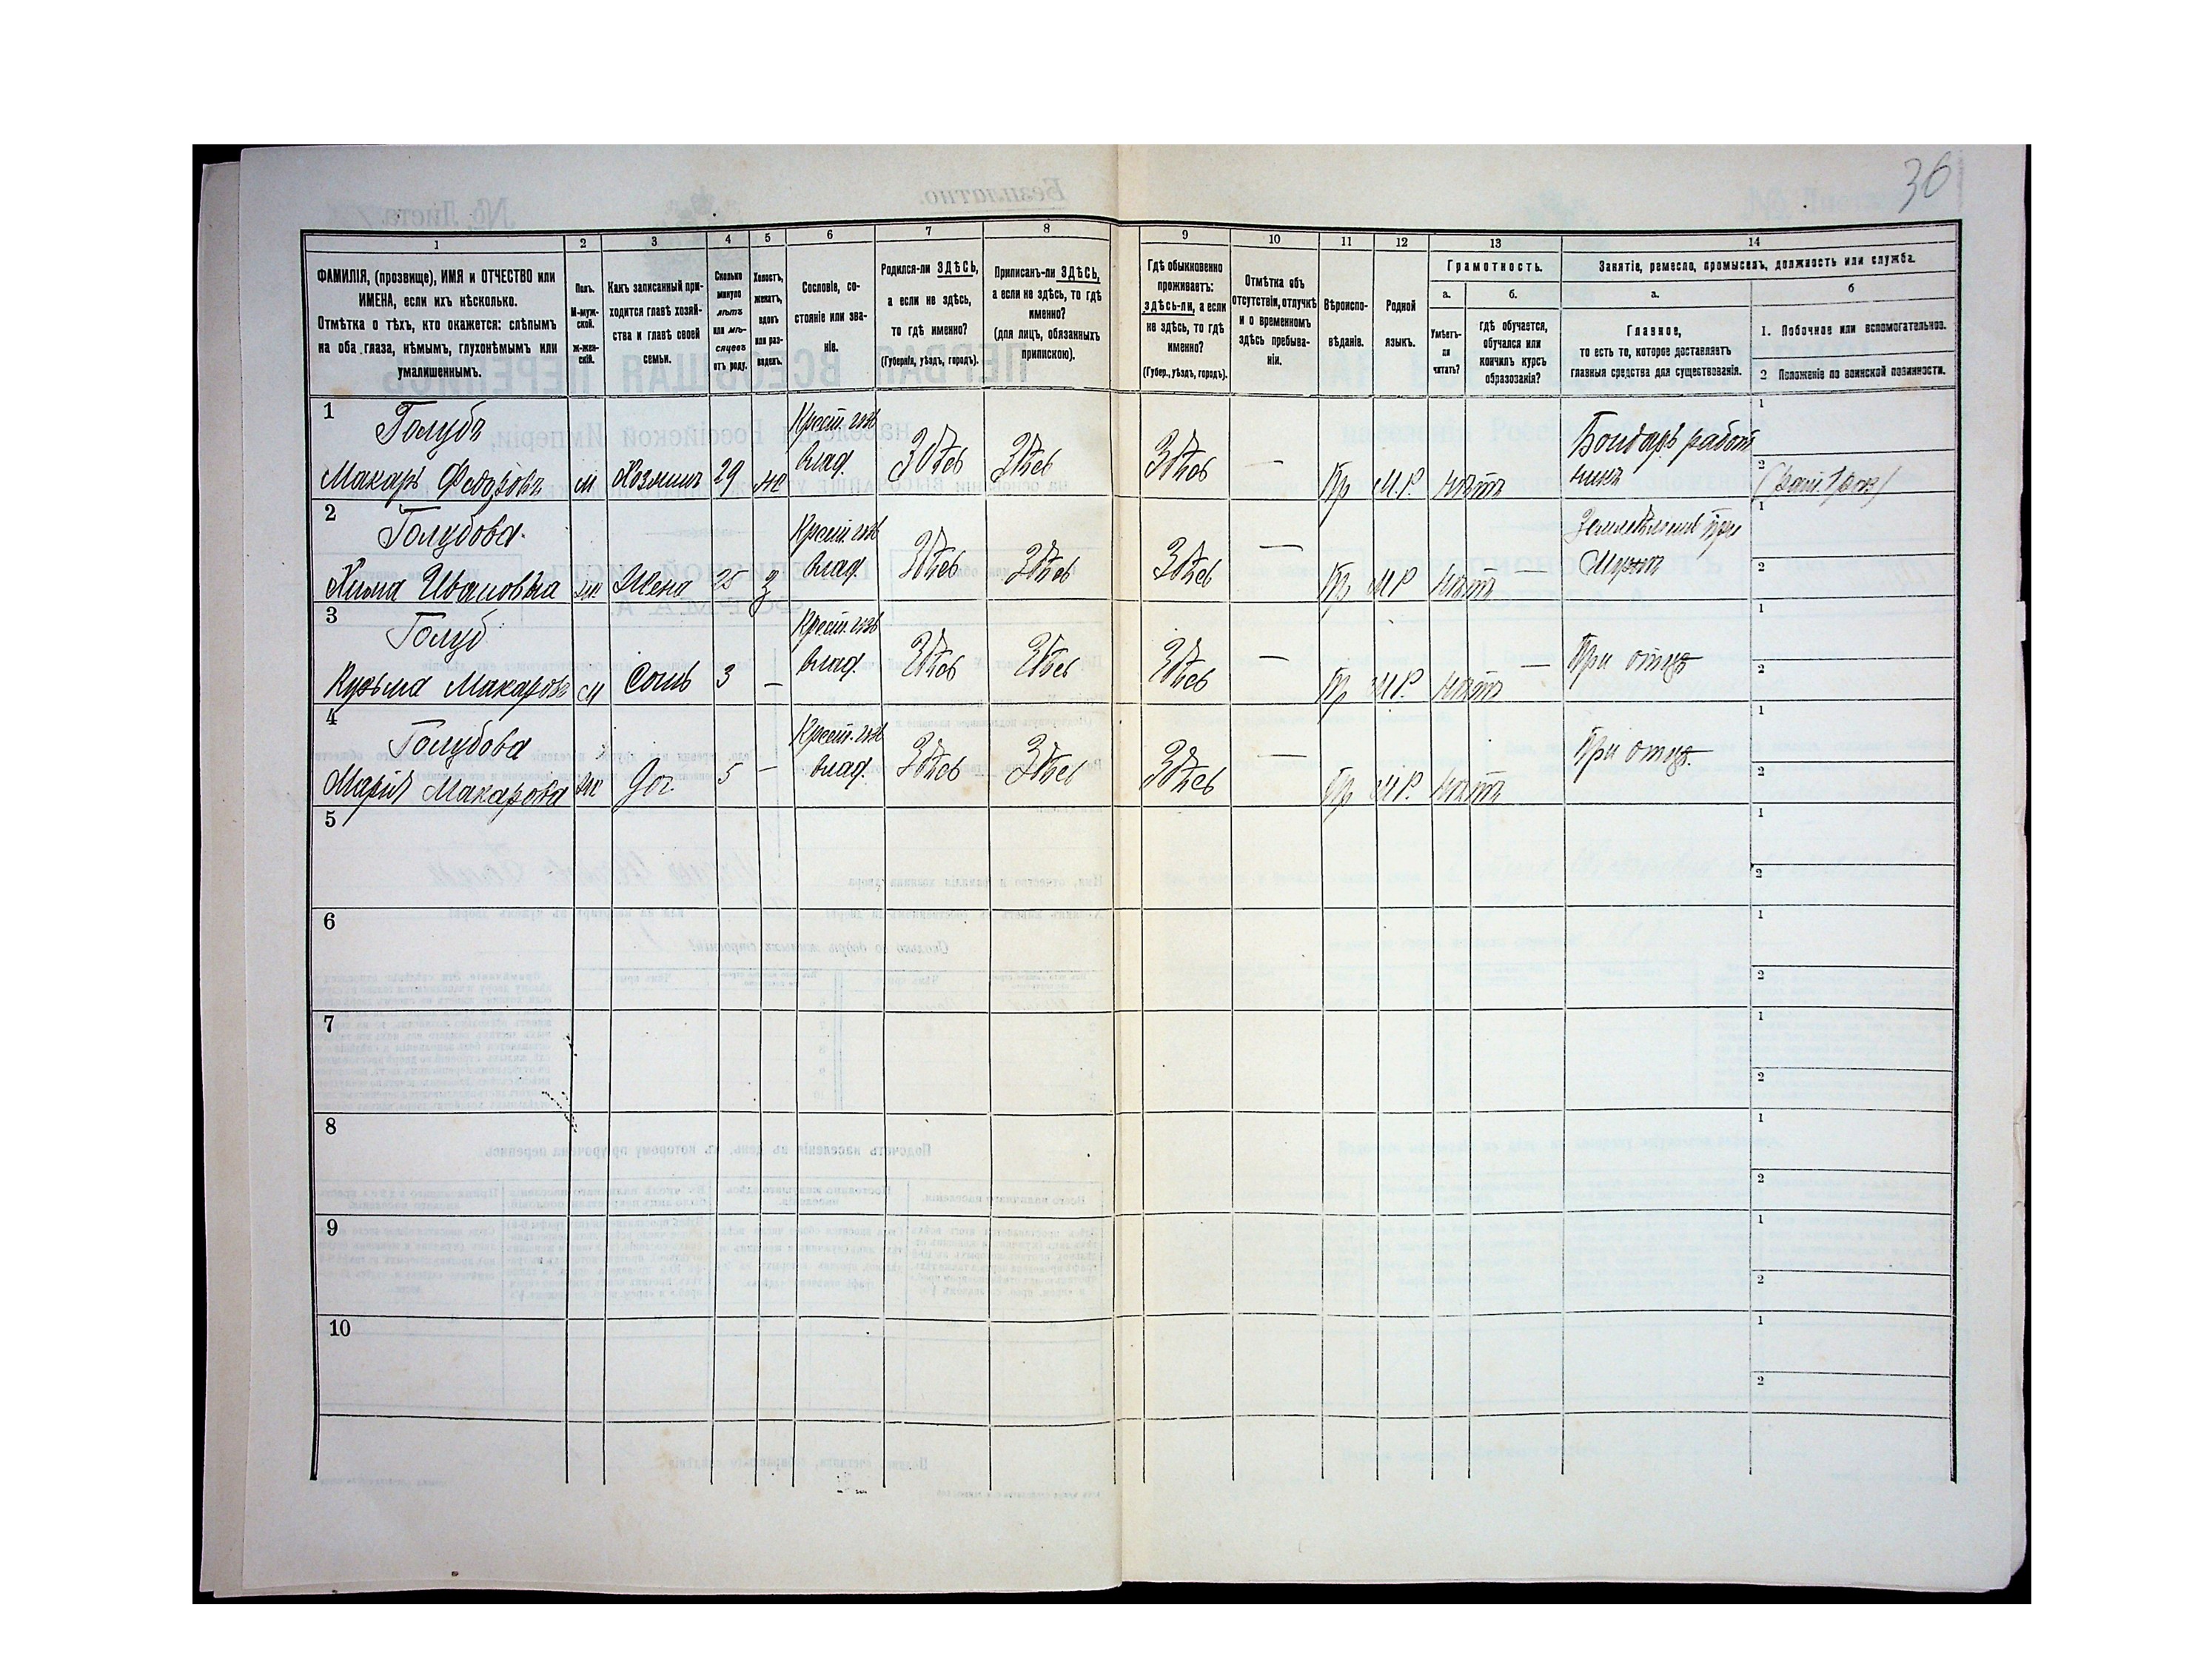 36
1 2 3 4 5 6 7 8 9 10 11 12 13 14
ФАМИЛІЯ, (прозвище), ИМЯ и ОТЧЕСТВО или
ИМЕНА, если ихъ нѣсколько.
Отмѣтка о тѣхъ, кто окажется: слѣпымъ
на оба глаза, нѣмымъ, глухонѣмымъ или
умалишеннымъ.
Полъ.
М-муж-
ской.
ж-жен-
скій.
Какъ записанный при-
ходится главѣ хозяй-
ства и главѣ своей
семьи.
Сколько
минуло
лѣтъ
или мѣ-
сяцевъ
отъ роду.
Холостъ,
женатъ,
вдовъ
или раз-
веденъ.
Сословіе, со-
стояніе или зва-
ніе.
Родился-ли ЗДѢСЬ,
а если не здѣсь,
то гдѣ именно?
(Губернія, уѣздъ, городъ).
Приписанъ-ли ЗДѢСЬ,
а если не здѣсь, то гдѣ
именно?
(для лицъ, обязанныхъ
припискою).
Гдѣ обыкновенно
проживаетъ:
здѣсь-ли, а если
не здѣсь, то гдѣ
именно?
(Губер., уѣздъ, городъ).
Отмѣтка объ
отсутствіи, отлучкѣ
и о временномъ
здѣсь пребыва-
ніи.
Вѣроиспо-
вѣданіе.
Родной
языкъ.
Грамотность.
а.
Умѣетъ-
ли
читать?
б.
гдѣ обучается,
обучался или
кончилъ курсъ
образованія?
Занятіе, ремесло, промыселъ, должность или служба.
а.
Главное,
то есть то, которое доставляетъ
главныя средства для существованія.
б
1. Побочное или вспомогательное.
2 Положеніе по воинской повинности.
1 Голубъ Крест. изъ Бондарь работ 1
Макаръ Федоровъ м Хозяинъ 29 ж влад. Здѣсь Здѣсь Здѣсь — Пр М.Р. нѣтъ никъ 2
2 Голубова Крест. изъ При 1
Ивановна ж Жена 25 З влад. Здѣсь Здѣсь Здѣсь — Пр М.Р. нѣтъ — Мужѣ 2
3 Голуб Крест. изъ 1
Кузьма Макаровъ м Сынъ 3 — влад. Здѣсь Здѣсь Здѣсь — Пр М.Р. нѣтъ — При отцѣ 2
4 Голубова Крест. изъ 1
Марія Макарова ж Доч. 5 — влад. Здѣсь Здѣсь Здѣсь — Пр М.Р. нѣтъ При отцѣ 2
5 1
2
6 1
2
7 1
2
8 1
2
9 1
2
10 1
2